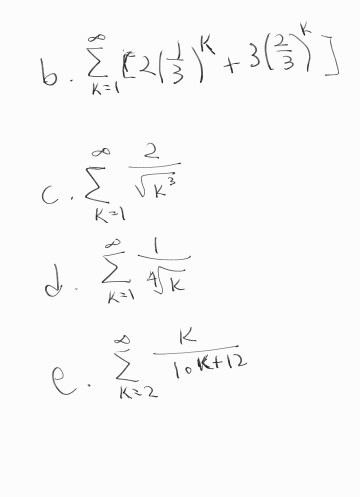 b. $\sum_{K=1}^{\infty} [2(\frac{1}{3})^K + 3(\frac{2}{3})^K]$
c. $\sum_{K=1}^{\infty} \frac{2}{\sqrt{K^3}}$
d. $\sum_{K=1}^{\infty} \frac{1}{\sqrt[4]{K}}$
e. $\sum_{K=2}^{\infty} \frac{K}{10K+12}$